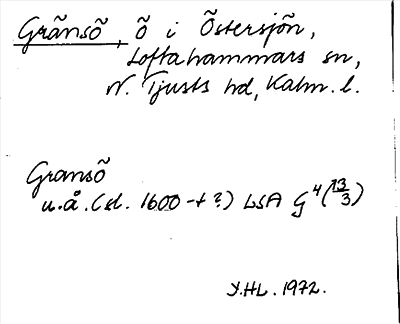 Gränsö, ö i Östersjön,
Loftahammars sn,
N. Tjusts hd, Kalm. l.
Gransö
u.å. (sl. 1600-t ?) LSA G4 (13/3)
Y.HL. 1972.